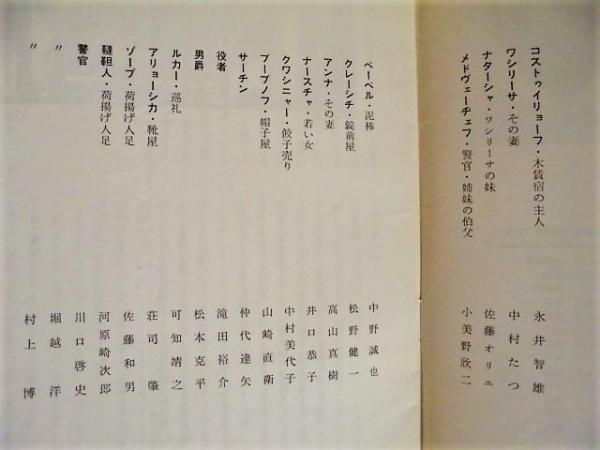 コストゥイリョーフ・木賃宿の主人 永井智雄
ワシリーサ・その妻 中村たつ
ナターシャ・ワシリーサの妹 佐藤オリエ
メドヴェーヂェフ・警官・姉妹の伯父 小美野欣二
ペーペル・泥棒 中野誠也
クレーシチ・錠前屋 松野健一
アンナ・その妻 高山真樹
ナースチャ・若い女 井口恭子
クワシニャー・餃子売り 中村美代子
ブーブノフ・帽子屋 山崎直衛
サーチン 仲代達矢
役者 滝田裕介
男爵 松本克平
ルカー・巡礼 可知靖之
アリョーシカ・靴屋 荘司肇
ゾーブ・荷揚げ人足 佐藤和男
韃靼人・荷揚げ人足 河原崎次郎
警官 川口啓史
〃 堀越洋
〃 村上博